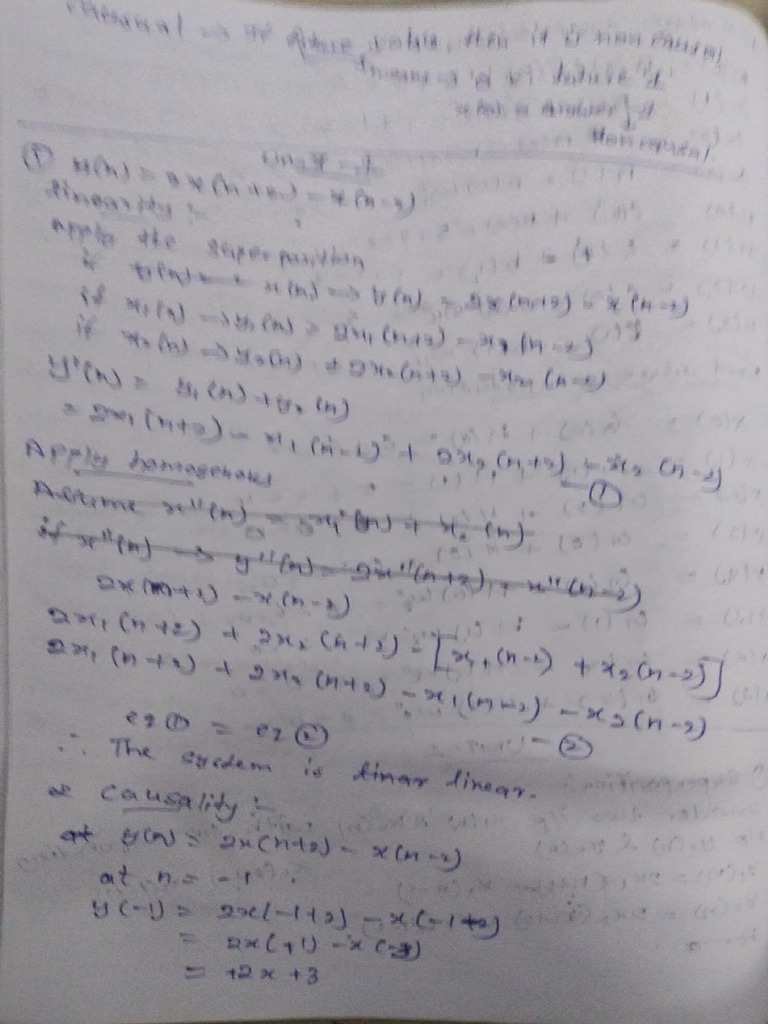 then it is non causal
① y(n) = 2x(n+2) - x(n-2)
linearity :-
Apply the superposition
x(n) → y(n) = 2x(n+2) - x(n-2)
if x₁(n) → y₁(n) = 2x₁(n+2) - x₁(n-2)
if x₂(n) → y₂(n) = 2x₂(n+2) - x₂(n-2)
y'(n) = y₁(n) + y₂(n)
= 2x₁(n+2) - x₁(n-2) + 2x₂(n+2) - x₂(n-2)
— ①
Apply homogenous
Assume x''(n) = x₁(n) + x₂(n)
if x''(n) → y''(n) = 2x''(n+2) - x''(n-2)
2x(n+2) - x(n-2)
2x₁(n+2) + 2x₂(n+2) - [x₁(n-2) + x₂(n-2)]
2x₁(n+2) + 2x₂(n+2) - x₁(n-2) - x₂(n-2)
— ②
eq ① = eq ②
∴ The system is linar linear.
causality :-
at y(n) = 2x(n+2) - x(n-2)
at n = -1
y(-1) = 2x(-1+2) - x(-1+2)
= 2x(+1) - x(-3)
= +2x +3